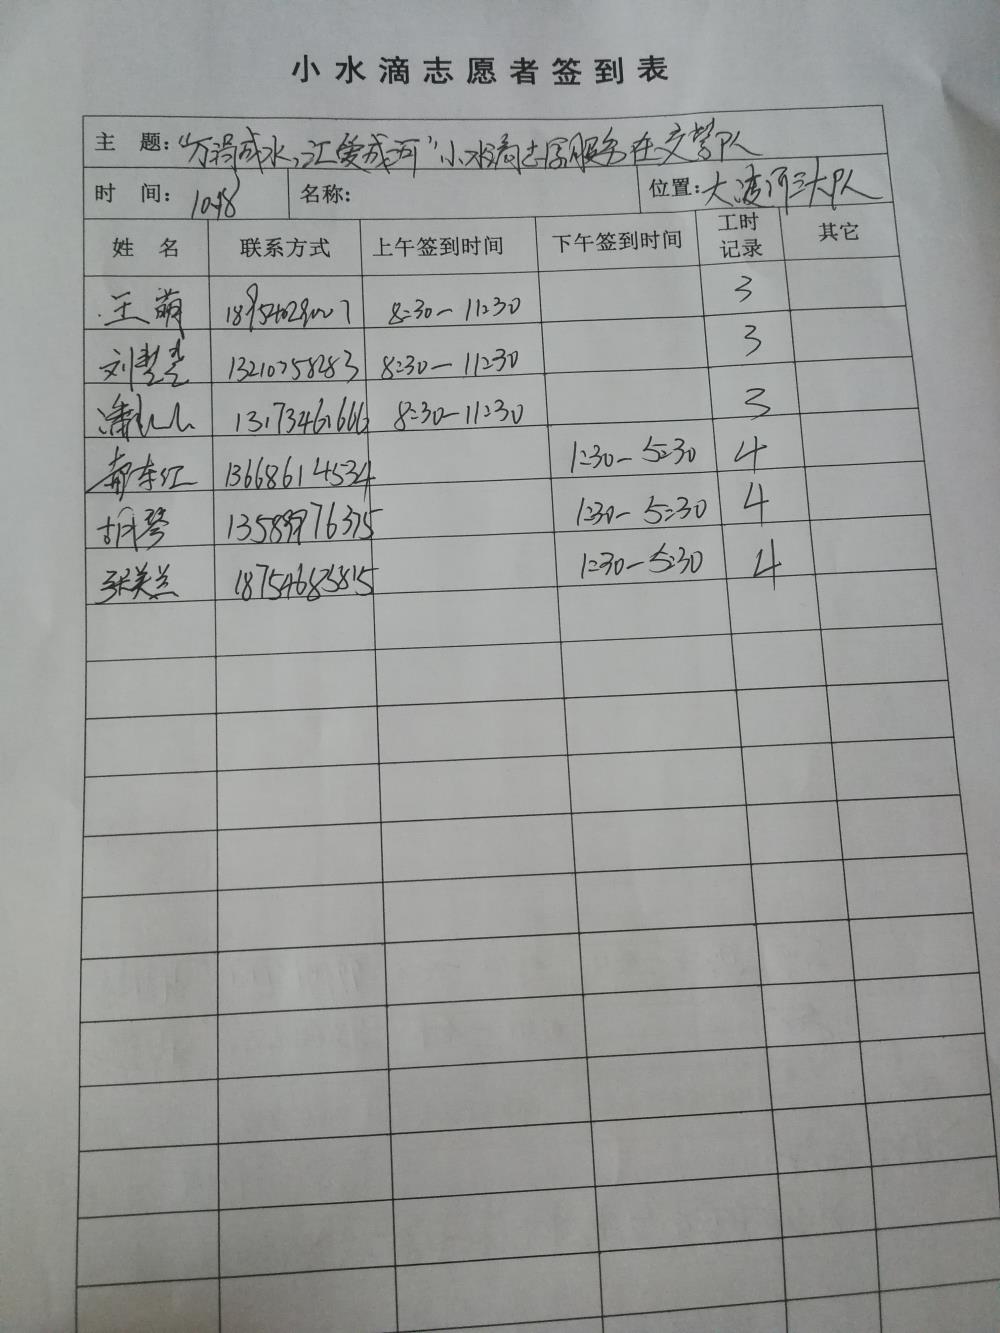 小水滴志愿者签到表
主 题: "万滴成水,汇爱成河"小水滴志愿服务在交警队
时 间: 10.18 名称: 位置: 大清河三大队
姓 名 联系方式 上午签到时间 下午签到时间 工时记录 其它
王萌 8:30-11:30 3
刘慧 13210758283 8:30-11:30 3
潘 13173461666 8:30-11:30 3
郝东红 13668614534 1:30-5:30 4
胡琴 1:30-5:30 4
张美兰 18754683815 1:30-5:30 4